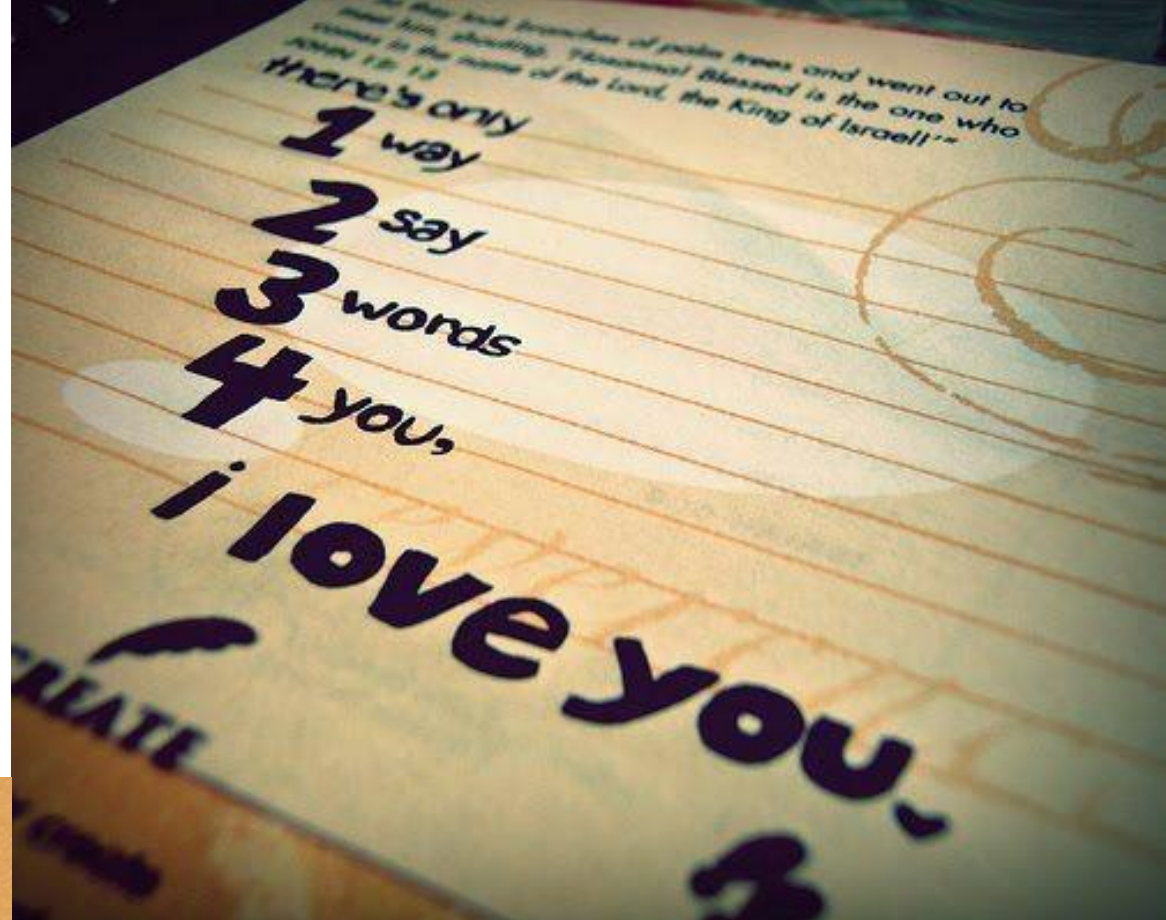 they took branches of palm trees and went out to
meet him, shouting, "Hosanna! Blessed is the one who
comes in the name of the Lord, the King of Israel!'"
JOHN 12: 13
there's only
1 way
2 say
3 words
4 you,
i love you
CREATE
create